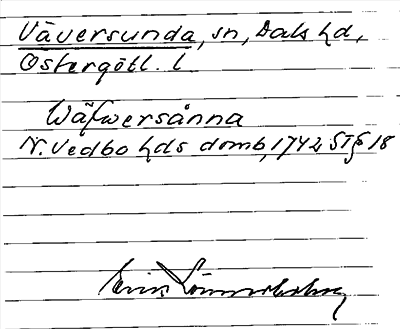 Väversunda, sn, Dals hd,
Östergötl. l
Wäfwersånna
N. Vedbo hds domb, 1742 ST § 18